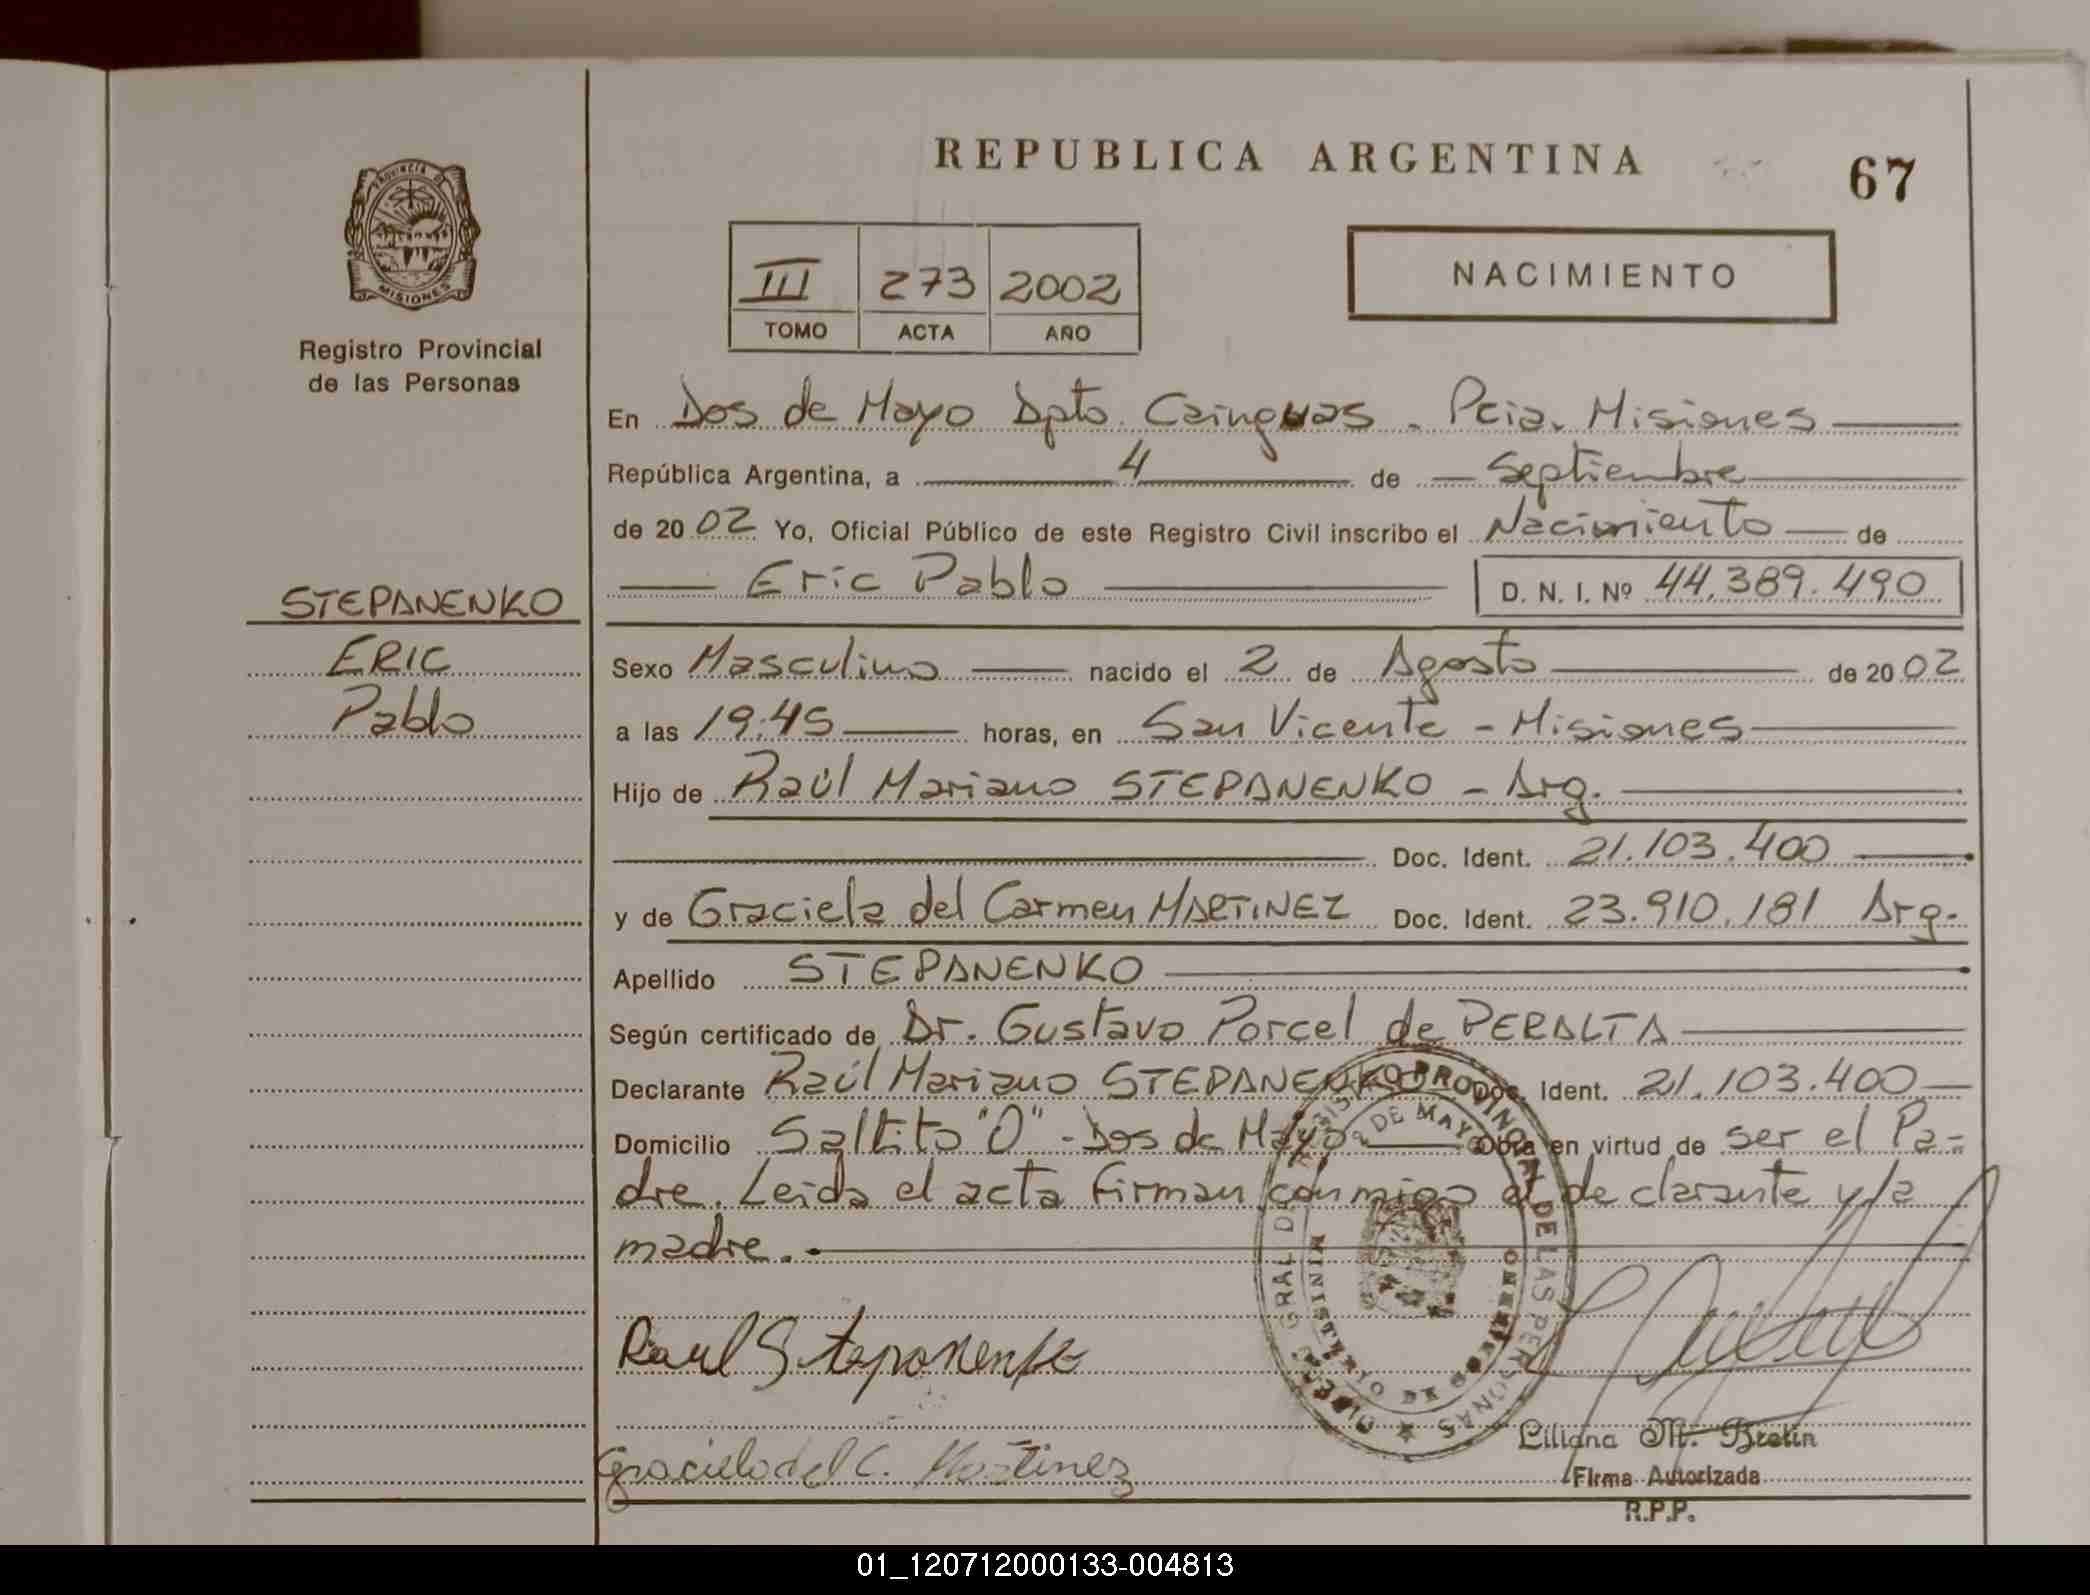 REPUBLICA ARGENTINA
67
PROVINCIA DE
MISIONES
Registro Provincial
de las Personas
III 273 2002
TOMO ACTA AÑO
NACIMIENTO
STEPANENKO
ERIC
Pablo
En Dos de Mayo Dpto. Cainguas. Pcia. Misiones
República Argentina, a 4 de Septiembre
de 2002 Yo, Oficial Público de este Registro Civil inscribo el Nacimiento de
Eric Pablo D. N. I. Nº 44.389.490
Sexo Masculino nacido el 2 de Agosto de 2002
a las 19:45 horas, en San Vicente - Misiones
Hijo de Raúl Mariano STEPANENKO - Arg.
Doc. Ident. 21.103.400
y de Graciela del Carmen MARTINEZ Doc. Ident. 23.910.181 Arg.
Apellido STEPANENKO
Según certificado de Dr. Gustavo Porcel de PERALTA
Declarante Raúl Mariano STEPANENKO Doc. Ident. 21.103.400
Domicilio Saltito "O" - Dos de Mayo Obra en virtud de ser el Pa-
dre. Leida el acta firman conmigo el declarante y la
madre.
Raul Steponenko
Graciela del C. Martinez
REGISTRO PROVINCIAL DE LAS PERSONAS
2 DE MAYO
MINISTERIO DE GOBIERNO
Liliana M. Brelin
Firma Autorizada
R.P.P.
01_120712000133-004813